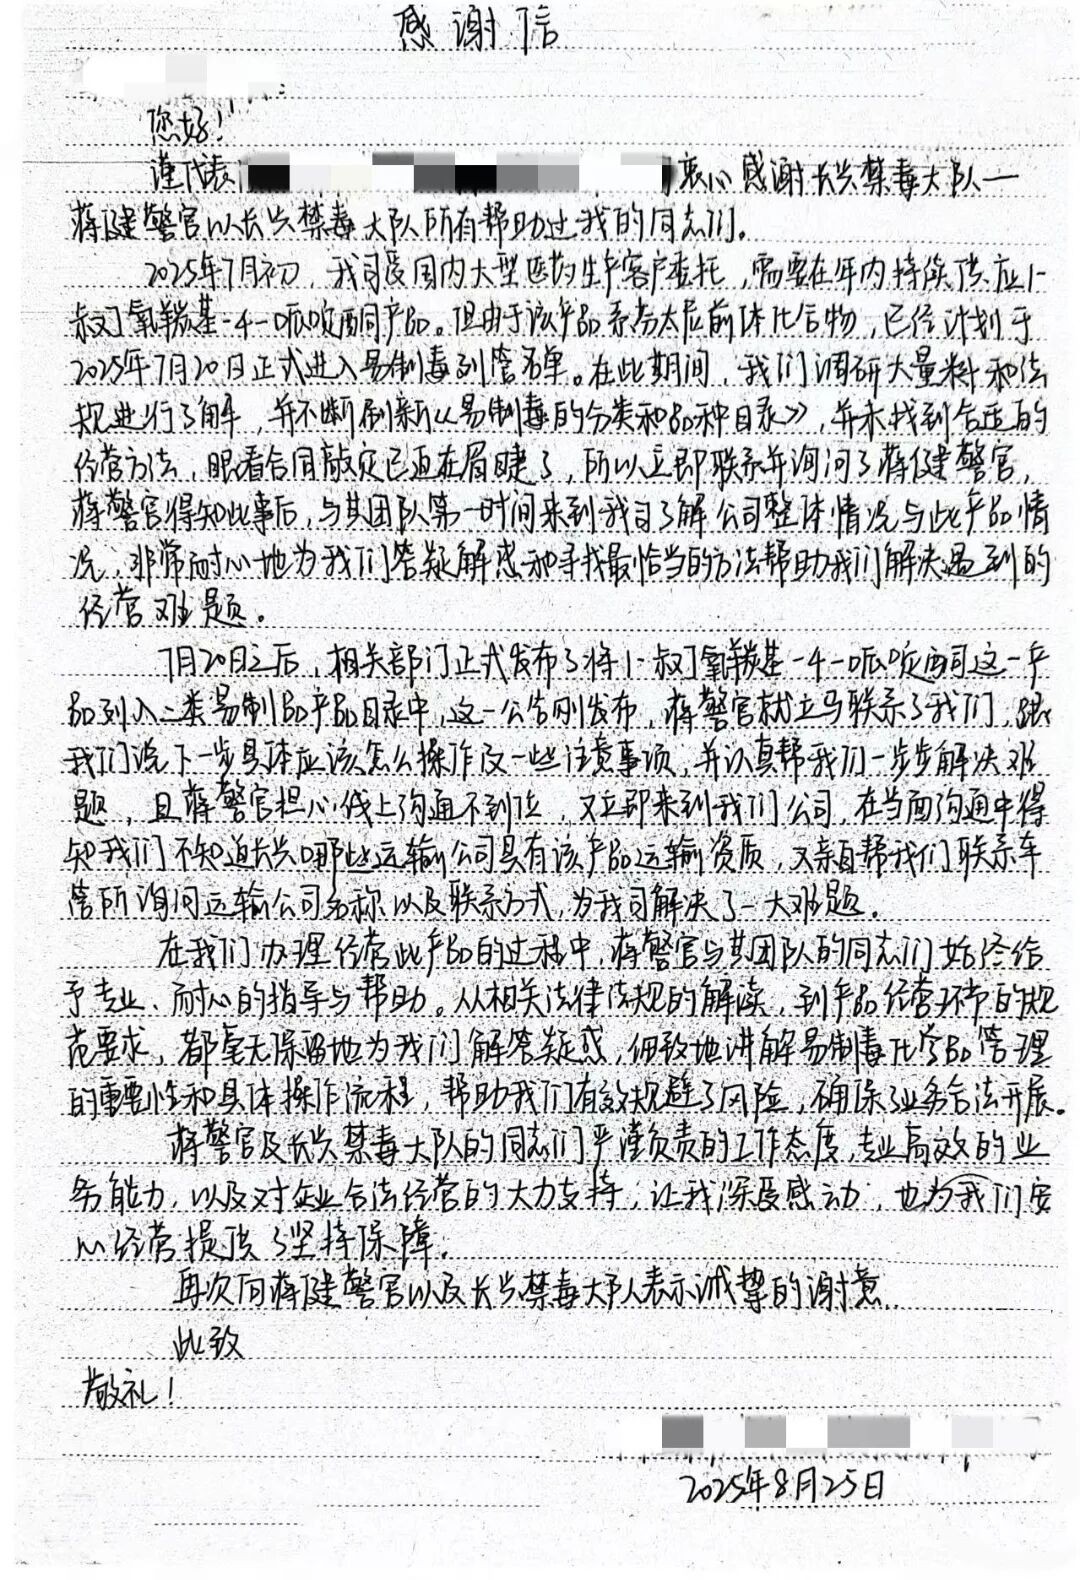 感谢信
您好！
谨代表 衷心感谢长兴禁毒大队—
蒋健警官以长兴禁毒大队所有帮助过我的同志们。
2025年7月初，我司受国内大型医药生产客户委托，需要在年内持续供应1-
叔丁氧羰基-4-哌啶酮产品。但由于该产品系芬太尼前体化合物，已经计划于
2025年7月20日正式进入易制毒列管名单。在此期间，我们调研大量料和法
规进行了解，并不断刷新《易制毒的分类和品种目录》，并未找到合适的
经营方法，眼看合同敲定已迫在眉睫了，所以立即联系并询问了蒋健警官，
蒋警官得知此事后，与其团队第一时间来到我司了解公司整体情况与此产品情
况，非常耐心地为我们答疑解惑和寻找最恰当的方法帮助我们解决遇到的
经营难题。
7月20日之后，相关部门正式发布了将1-叔丁氧羰基-4-哌啶酮这一产
品列入二类易制品产品目录中，这一公告刚发布，蒋警官就立马联系了我们，跟
我们说下一步具体应该怎么操作及一些注意事项，并认真帮我们一步步解决难
题，且蒋警官担心线上沟通不到位，又立即来到我们公司，在当面沟通中得
知我们不知道长兴哪些运输公司具有该产品运输资质，又亲自帮我们联系车
管所询问运输公司名称以及联系方式，为我司解决了一大难题。
在我们办理经营此产品的过程中，蒋警官与其团队的同志们始终给
予专业、耐心的指导与帮助。从相关法律法规的解读，到产品经营环节的规
范要求，都毫无保留地为我们解答疑惑，细致地讲解易制毒化学品管理
的重要性和具体操作流程，帮助我们有效规避了风险，确保了业务合法开展。
蒋警官及长兴禁毒大队的同志们严谨负责的工作态度，专业高效的业
务能力，以及对企业合法经营的大力支持，让我深受感动，也为我们安
心经营提供了坚持保障。
再次向蒋健警官以及长兴禁毒大队表示诚挚的谢意
此致
敬礼！
2025年8月25日